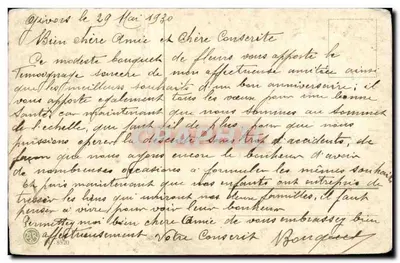 Givors le 29 Mai 1930
Bien chère Amie et Chère Conscrite
Ce modeste bouquet de fleurs vous apporte le
Temoignage sincère de mon affectueuse amitiée ainsi
que les meilleurs souhaits d'un bon anniversaire; il
vous apporte egalement tous les vœux pour une bonne
Santée, car maintenant que nous sommes au sommet
de l'echelle, que faut-il de plus pour que nous
puissions operer la descente sans trop d'accidents, de
façon que nous ayons encore le bonheur d'avoir
de nombreuses occasions a formuler les mêmes souhaits
Et puis maintenant que nos enfants ont entrepris de
tresser les liens qui uniront nos deux familles, il faut
penser a vivre pour voir leur bonheur
Permettez moi bien chère Amie de vous embrasser bien
affectueusement Votre Conscrit